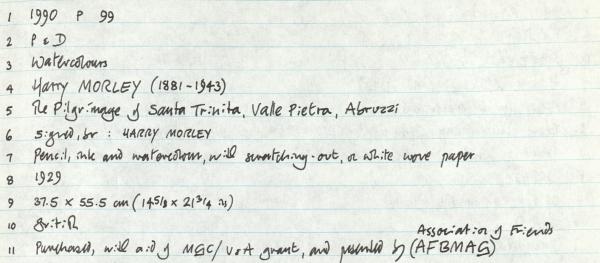 1 1990 P 99
2 P & D
3 Watercolours
4 Harry MORLEY (1881-1943)
5 The Pilgrimage of Santa Trinita, Valle Pietra, Abruzzi
6 signed, br : HARRY MORLEY
7 Pencil, ink and watercolour, with scratching-out, on white wove paper
8 1929
9 37.5 x 55.5 cm (14 5/8 x 21 3/4 in)
10 British
Association of Friends
11 Purchased, with aid of MGC/V&A grant, and presented by (AFBMAG)